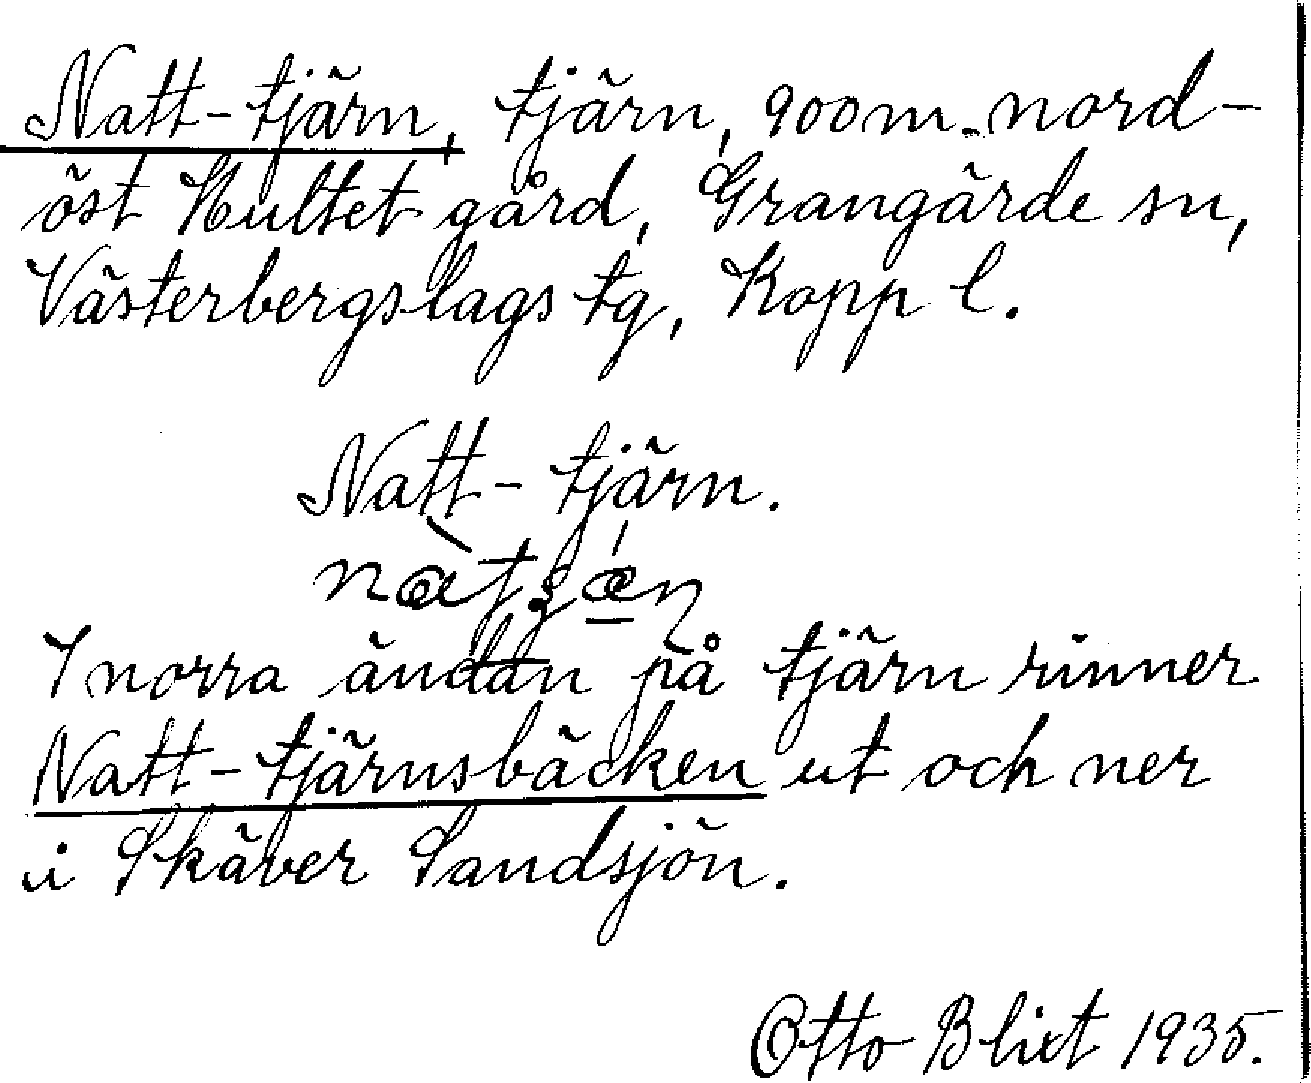 Natt-tjärn, tjärn, 900 m. nord-
öst Hultet gård, Grangärde sn,
Västerbergslags tg, Kopp l.
Natt-tjärn.
I norra ändan på tjärn rinner
Natt-tjärnsbäcken ut och ner
i Skäver Sandsjön.
Otto Blixt 1935.